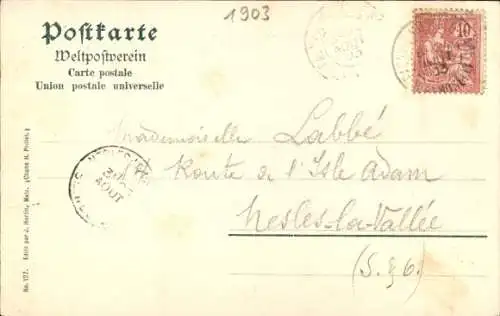 1903
Postkarte
Weltpostverein
Carte postale
Union postale universelle
10
Mademoiselle Labbé
Route de l'Isle Adam
Nesles-la-Vallée
(S. & O.)
AOUT
No. 127. Edité par J. Hertitz, Metz.